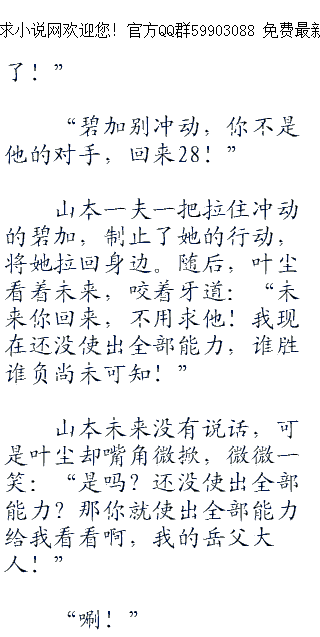 求小说网欢迎您！官方QQ群59903088 免费最新
了！”
“碧加别冲动，你不是
他的对手，回来28！”
山本一夫一把拉住冲动
的碧加，制止了她的行动，
将她拉回身边。随后，叶尘
看着未来，咬着牙道：“未
来你回来，不用求他！我现
在还没使出全部能力，谁胜
谁负尚未可知！”
山本未来没有说话，可
是叶尘却嘴角微掀，微微一
笑：“是吗？还没使出全部
能力？那你就使出全部能力
给我看看啊，我的岳父大
人！”
“唰！”